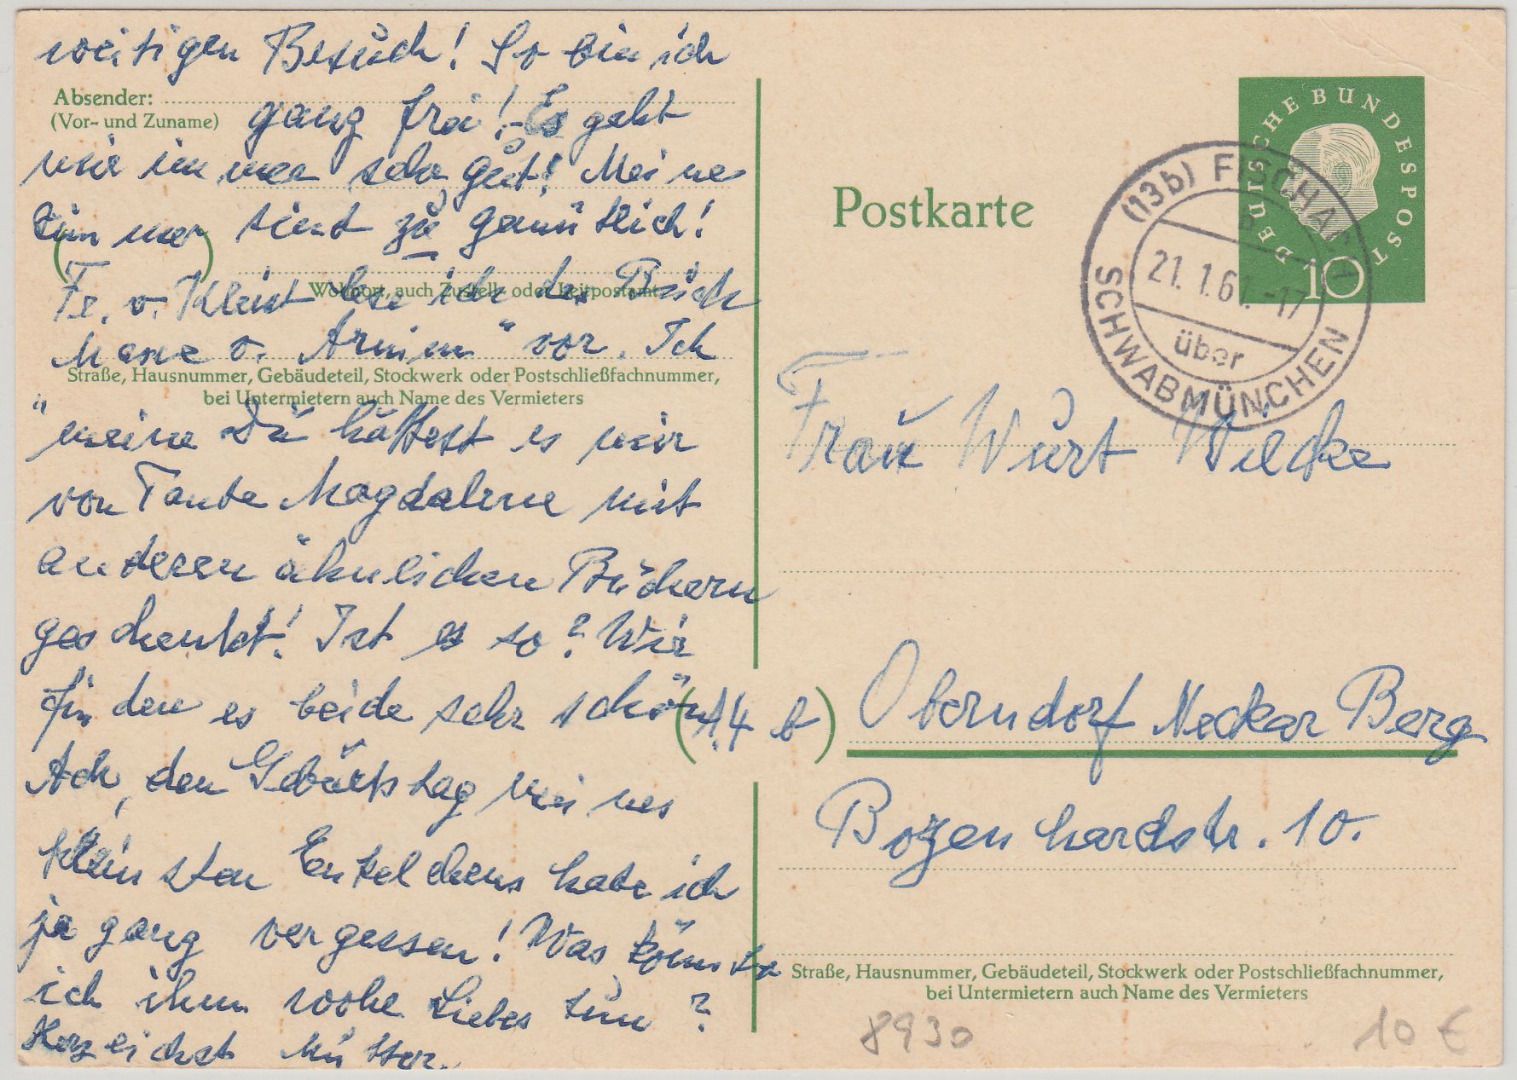 weitigen Besuch! So bin ich
Absender:
(Vor- und Zuname)
ganz frei! Es geht
mir immer sehr gut! Meine
Zimmer sind zu gemütlich!
Fr. v. Kleist lese ich das Buch
Wohnort, auch Zustell- oder Leitpostamt
v. Arnim" vor. Ich
Straße, Hausnummer, Gebäudeteil, Stockwerk oder Postschließfachnummer,
bei Untermietern auch Name des Vermieters
meine Du hättest es mir
von Tante Magdalene mit
anderen ähnlichen Büchern
geschenkt! Ist es so? Wir
finden es beide sehr schön
Ach, den Geburtstag meines
kleinsten Enkelchens habe ich
ja ganz vergessen! Was könnte
ich ihm wohl Liebes tun?
Herzlichst Mutter.
Postkarte
DEUTSCHE BUNDESPOST
10
(13b) FISCHACH
b
21.1.61.-17
über
SCHWABMÜNCHEN
Frau Wilcke
(14 b) Oberndorf Neckar Berg
Bozenhardstr. 10.
Straße, Hausnummer, Gebäudeteil, Stockwerk oder Postschließfachnummer,
bei Untermietern auch Name des Vermieters
8930
10 €